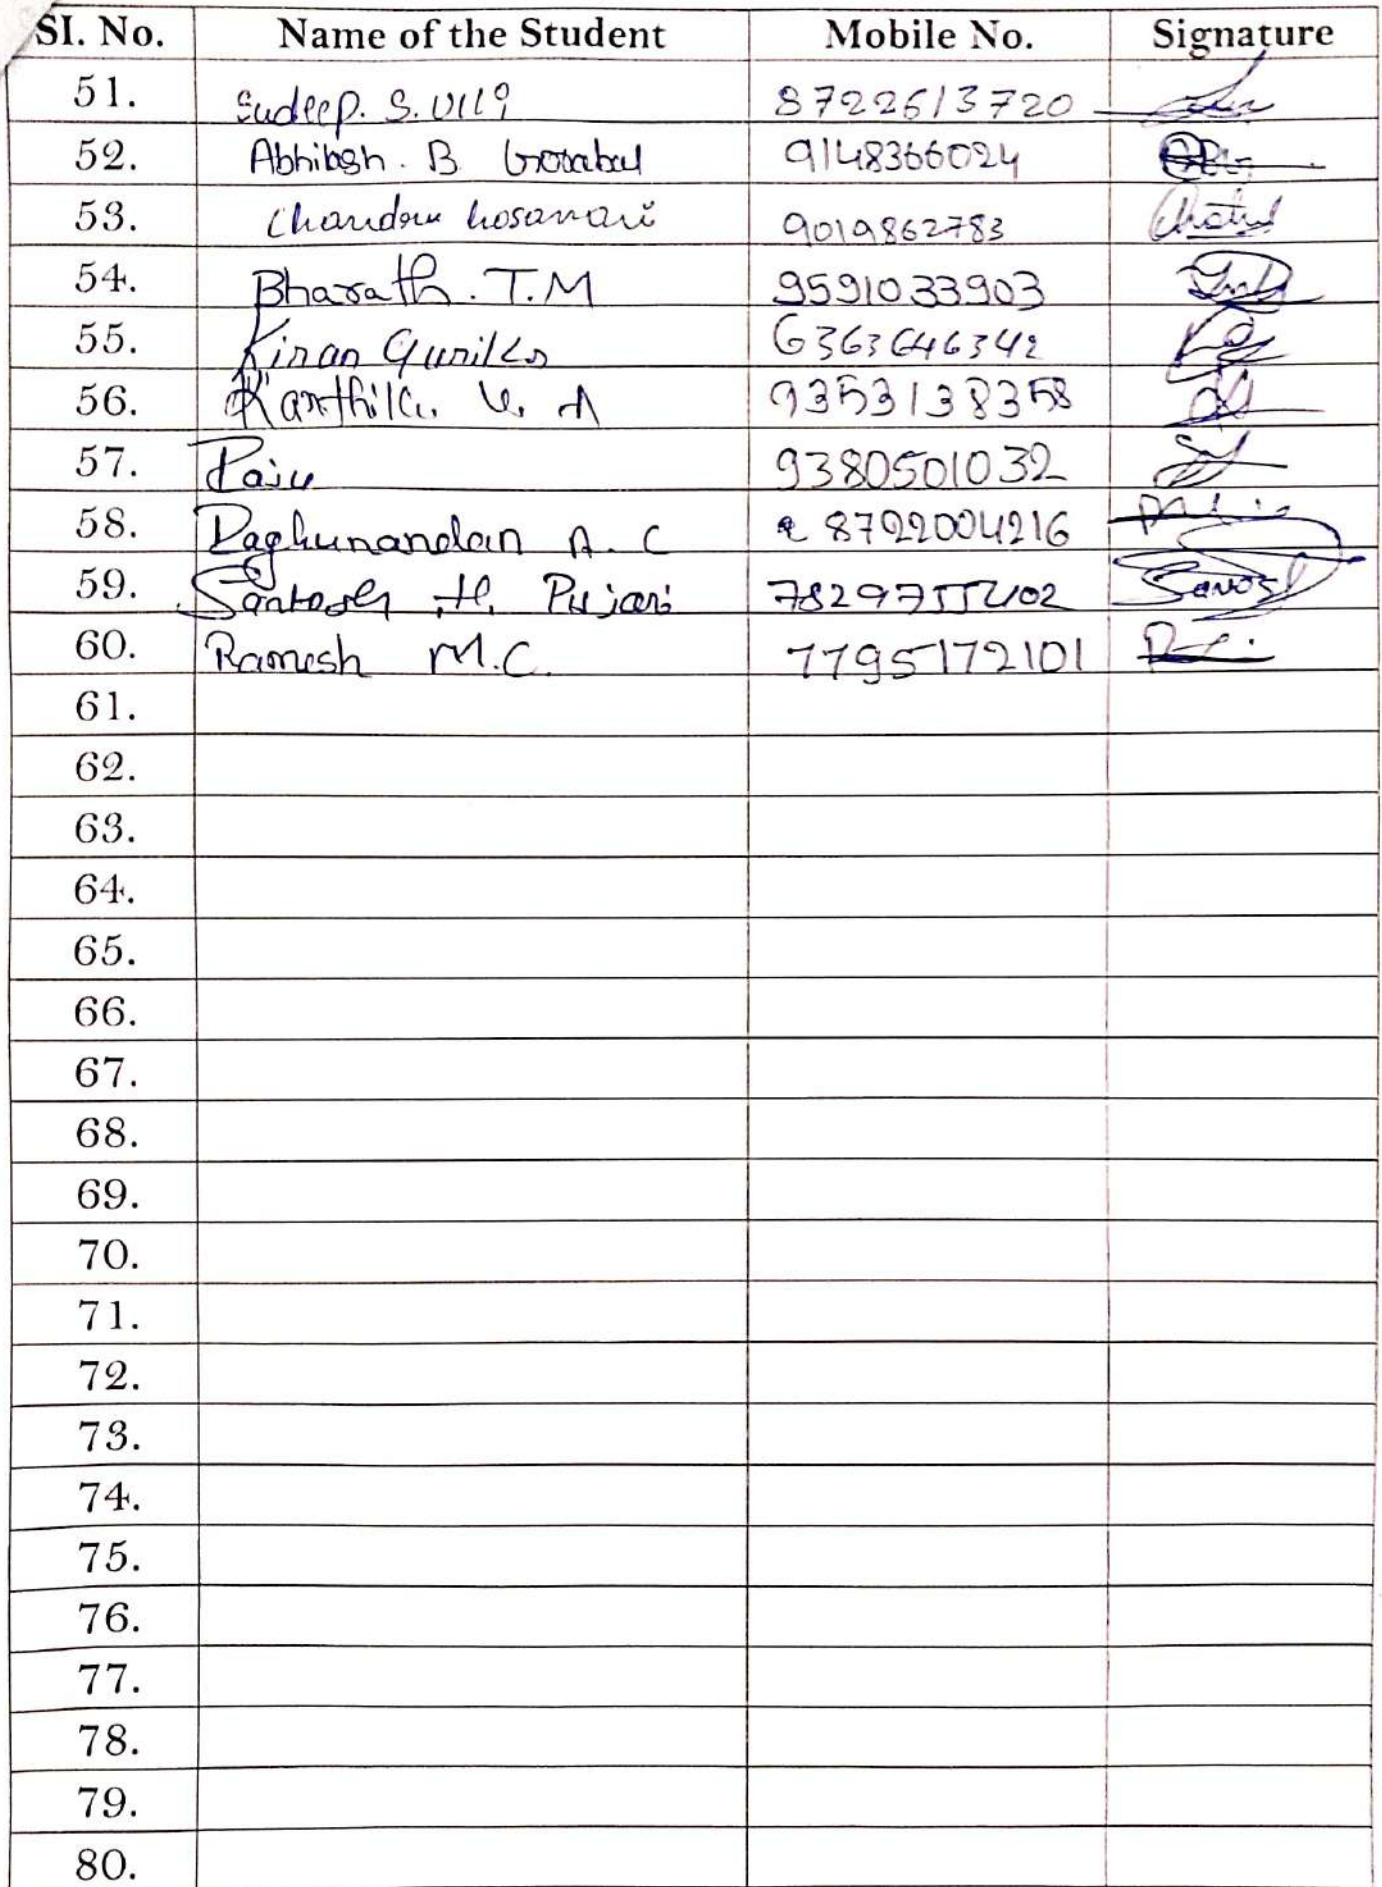 Sl. No. Name of the Student Mobile No. Signature
51. Sudeep. S. 8722613720
52. Abhilash. B. 9148366024
53. hosamani 9019862783
54. Bharath. T.M 9591033903
55. Kiran 6363646342
56. 9353138358
57. Raju 9380501032
58. Raghunandan A. C 8722004216
59. Santosh .H. Pujari
60. Ramesh M.C. 7795172101
61.
62.
63.
64.
65.
66.
67.
68.
69.
70.
71.
72.
73.
74.
75.
76.
77.
78.
79.
80.